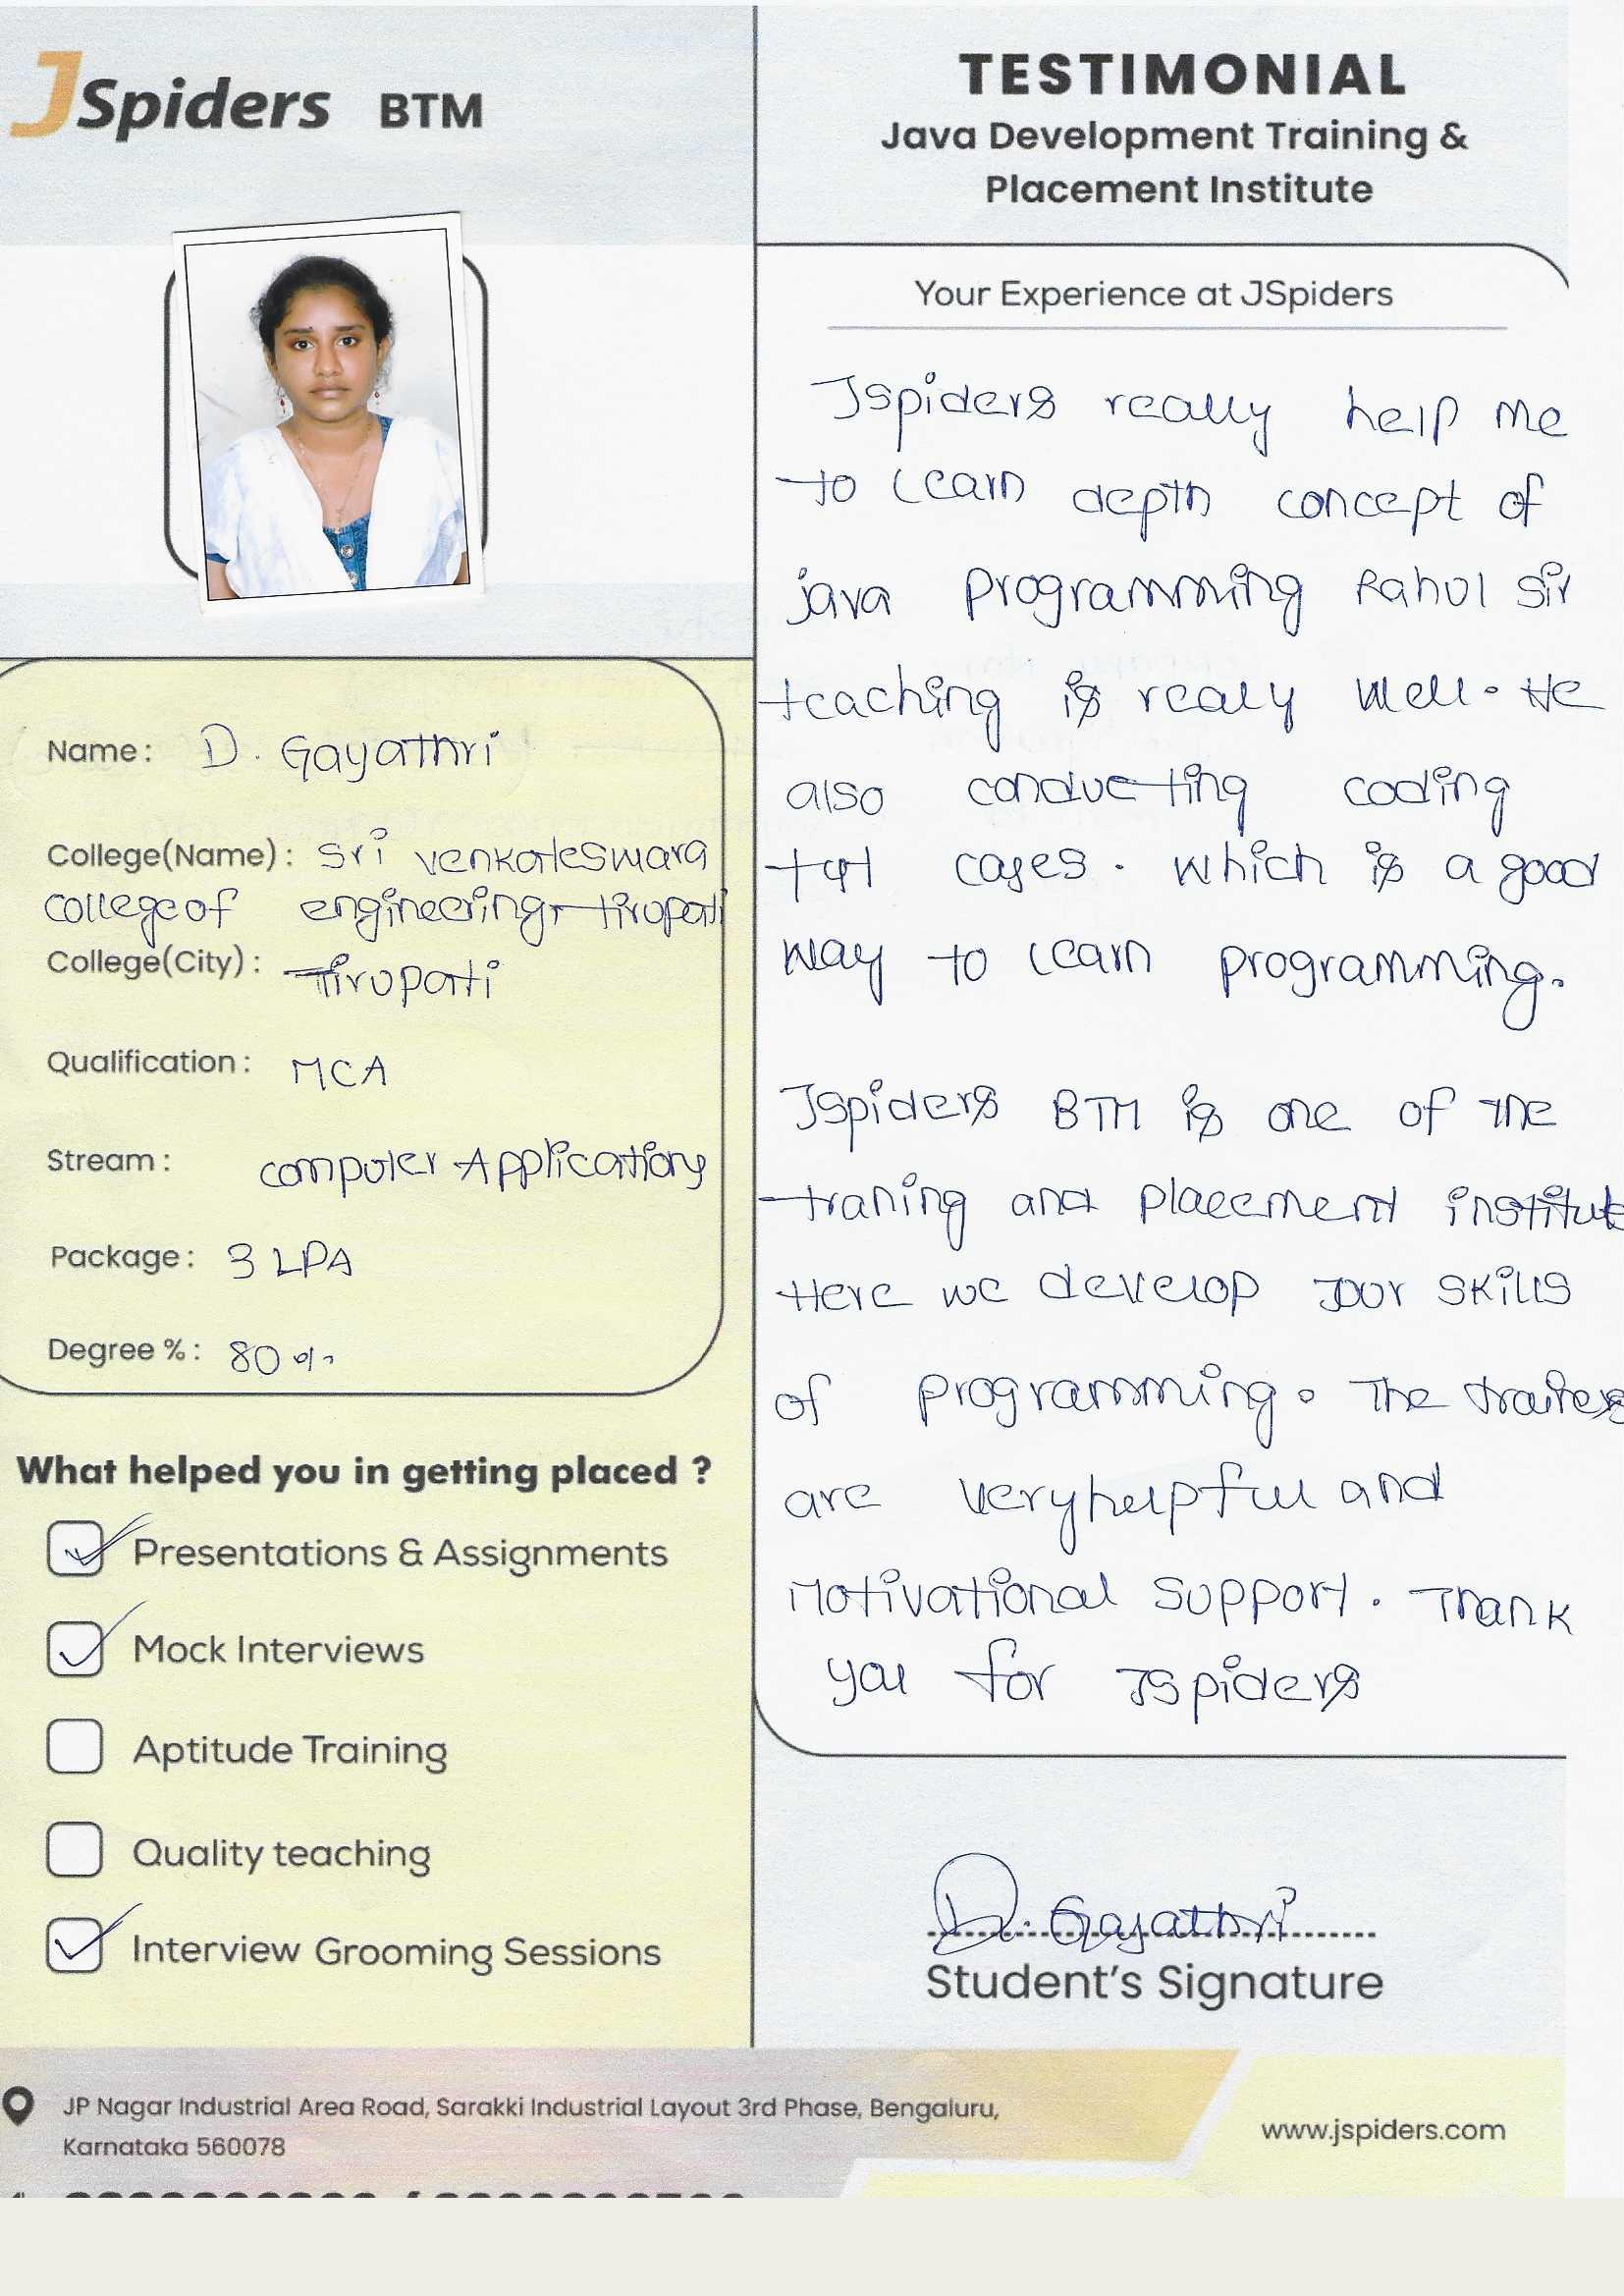 JSpiders BTM
Name: D. Gayathri
College(Name): Sri Venkateswara
College of engineering, tirupati
College(City): Tirupati
Qualification: MCA
Stream: Computer Applications
Package: 3 LPA
Degree %: 80%
What helped you in getting placed ?
Presentations & Assignments
Mock Interviews
Aptitude Training
Quality teaching
Interview Grooming Sessions
TESTIMONIAL
Java Development Training &
Placement Institute
Your Experience at JSpiders
Jspiders really help me
to learn depth concept of
java programming Rahul Sir
teaching is realy well. He
also conducting coding
cases. Which is a good
way to learn programming.
Jspiders BTM is one of the
traning and placement institute
Here we develop our skills
of programming. The
are very helpful and
Motivational support. Thank
you for Jspiders
D. Gayathri
Student's Signature
JP Nagar Industrial Area Road, Sarakki Industrial Layout 3rd Phase, Bengaluru,
Karnataka 560078
www.jspiders.com